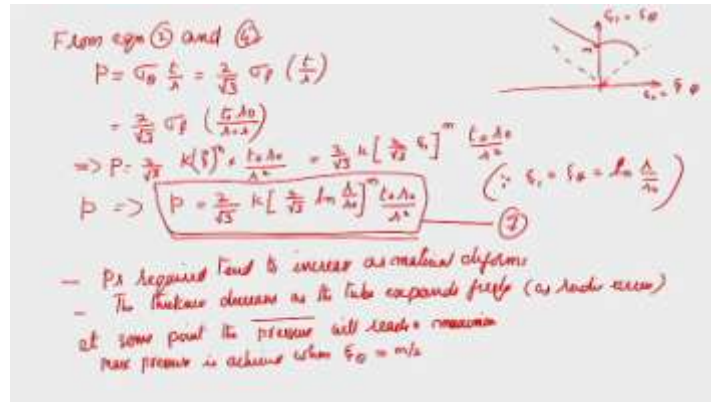 From eqn ② and ④
P = σθ t/r = 2/√3 σf (t/r)
= 2/√3 σf (t₀ r₀/r·r)
=> P = 2/√3 K(ε)ⁿ · t₀ r₀/r² = 2/√3 K[2/√3 ε₁]ᵐ t₀ r₀/r²
(∵ ε₁ = εθ = ln r/r₀)
P => P = 2/√3 K[2/√3 ln r/r₀]ᵐ t₀ r₀/r²
ε₁ = εθ
m
- Pr required tend to increase as material deforms
- The thickness decrease as the tube expands freely (as radii increase)
at some point the pressure will reach maximum
max pressure is achieved when εθ = m/2